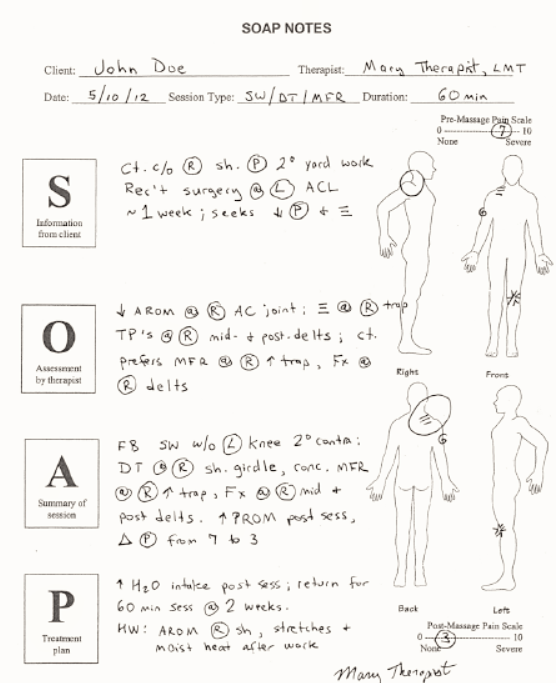 SOAP NOTES
Client: John Doe Therapist: Mary Therapist, LMT
Date: 5/10/12 Session Type: SW/DT/MFR Duration: 60 min
Pre-Massage Pain Scale
0 ---------- 7 -- 10
None Severe
S
Information
from client
Ct. c/o Ⓡ sh. Ⓟ 2° yard work
Rec't surgery @ Ⓛ ACL
~ 1 week; seeks ↓ Ⓟ + ≡
O
Assessment
by therapist
↓ AROM @ Ⓡ AC joint; ≡ @ Ⓡ trap
TP's @ Ⓡ mid- + post-delts; ct.
prefers MFR @ Ⓡ ↑ trap, Fx @
Ⓡ delts
Right Front
A
Summary of
session
FB SW w/o Ⓛ knee 2° contra;
DT @ Ⓡ sh. girdle, conc. MFR
@ Ⓡ ↑ trap, Fx @ Ⓡ mid +
post delts. ↑ PROM post sess,
Δ Ⓟ from 7 to 3
P
Treatment
plan
↑ H2O intake post sess; return for
60 min sess @ 2 weeks.
HW: AROM Ⓡ sh, stretches +
moist heat after work
Back Left
Post-Massage Pain Scale
0 --- 3 ---------- 10
None Severe
Mary Therapist